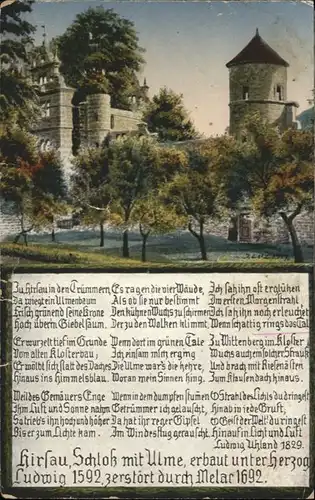 Zu Hirsau in den Trümmern
Da wiegt ein Ulmenbaum
Frisch grünend seine Krone
Hoch überm Giebelsaum.
Er wurzelt tief im Grunde
Vom alten Klosterbau;
Er wölbt sich statt des Daches
Hinaus ins Himmelsblau.
Weil des Gemäuers Enge
Ihm Luft und Sonne nahm
So trieb's ihn hoch und höher
Bis er zum Lichte kam.
Es ragen die vier Wände,
Als ob sie nur bestimmt
Den kühnen Wuchs zu schirmen
Der zu den Wolken klimmt.
Wenn dort im grünen Tale
Ich einsam mich erging
Die Ulme war's die hehre,
Woran mein Sinnen hing.
Wenn in dem dumpfen stummen
Getrümmer ich gelauscht,
Da hat ihr reger Wipfel
Im Windesflug gerauscht.
Ich sah ihn oft erglühen
Im ersten Morgenstrahl
Ich sah ihn noch erleuchtet
Wenn schattig rings das Tal.
Zu Wittenberg im Kloster
Wuchs auch ein solcher Strauß
Und brach mit Riesenästen
Zum Klausendach hinaus.
O Strahl des Lichts du dringest
Hinab in jede Gruft,
O Geist der Welt du ringest
Hinauf in Licht und Luft
Ludwig Uhland 1829.
Hirsau, Schloß mit Ulme, erbaut unter Herzog
Ludwig 1592, zerstört durch Melac 1692.